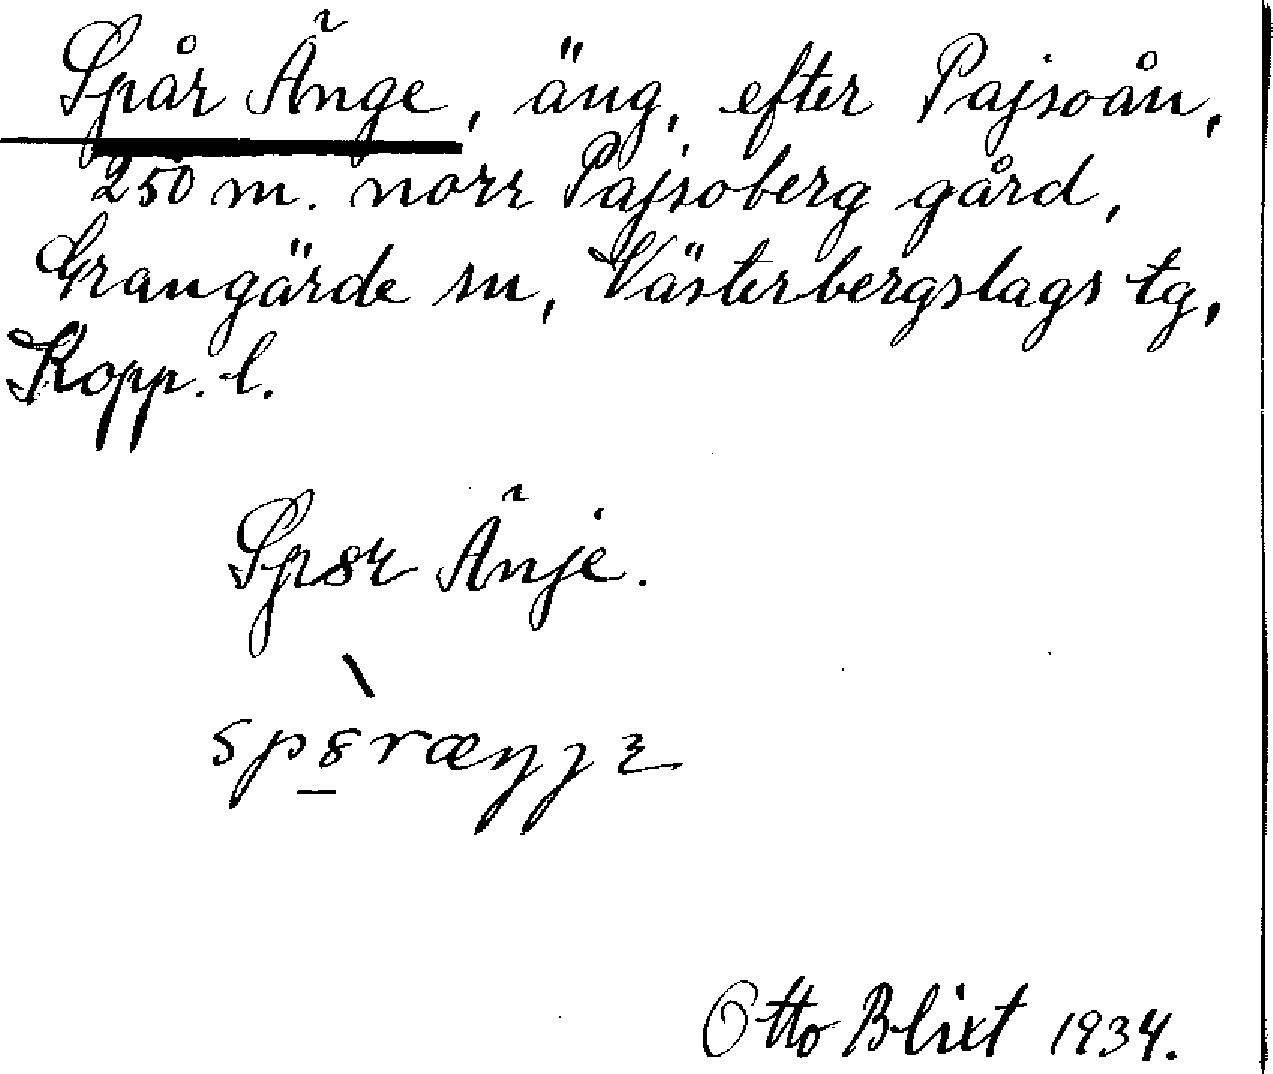 Spår Änge, äng, efter Pajsoån,
250 m. norr Pajsoberg gård,
Grangärde sn, Västerbergslags tg,
Kopp. l.
Sp8r Änje.
sp8̀ræŋjɛ
Otto Blixt 1934.